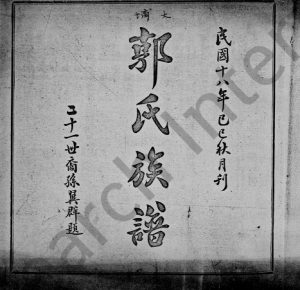 大灣
民國十八年己巳秋月刊
郭氏族譜
二十一世裔孫巽群題